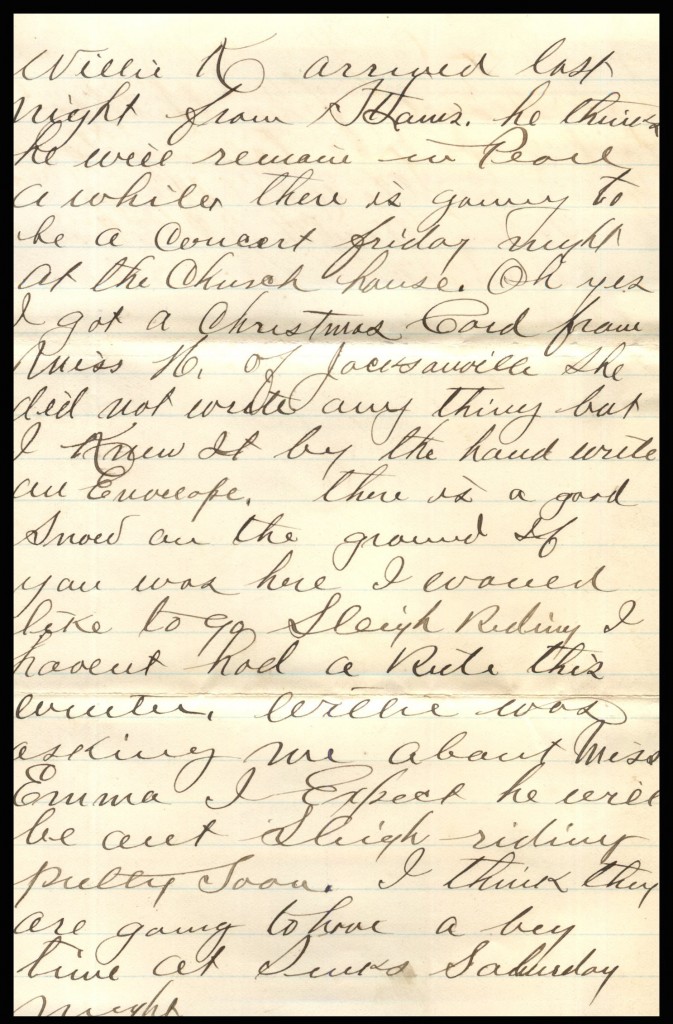 Willie K arrived last
night from he thinks
he will remain in Pearl
a while, there is gowny to
be a Concert friday night
at the Church house. Oh yes
I got a Christmas Card from
Miss H. of Jacksonville she
did not write any thing but
I Knew It by the hand write
on Envelope. there is a good
Snow on the ground If
you was here I would
like to go Sleigh Riding I
havent had a Ride this
winter. Willie was
asking me about Miss
Emma I Expect he will
be out Sleigh riding
pretty Soon. I think they
are going to have a big
time at Saturday
night